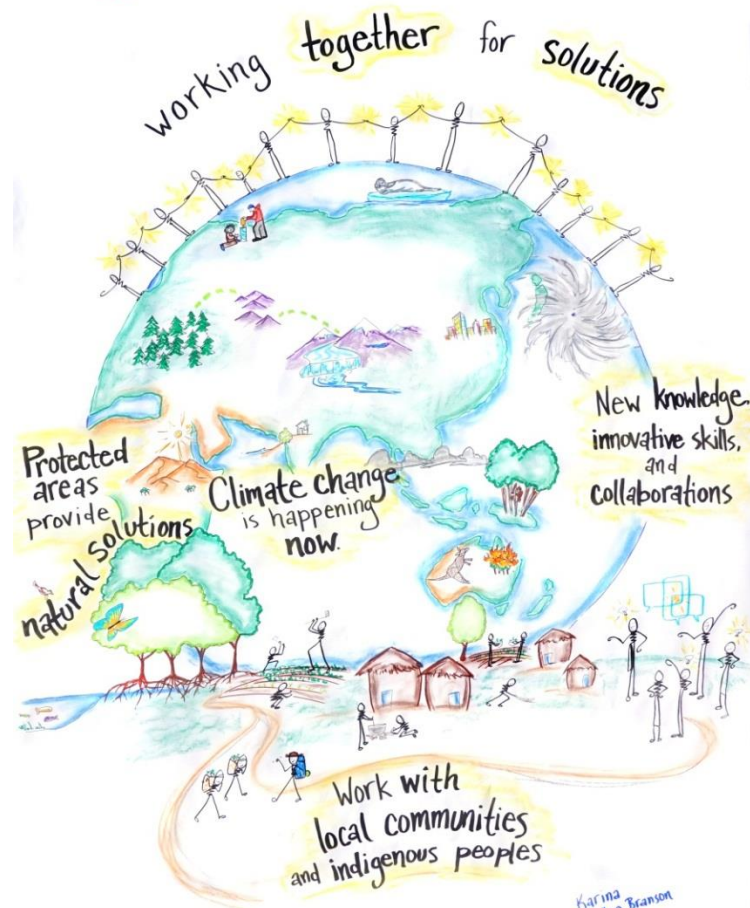 working together for solutions
New knowledge,
innovative skills,
and
collaborations
Protected
areas
provide
natural solutions
Climate change
is happening
now.
Work with
local communities
and indigenous peoples
Karina
Branson